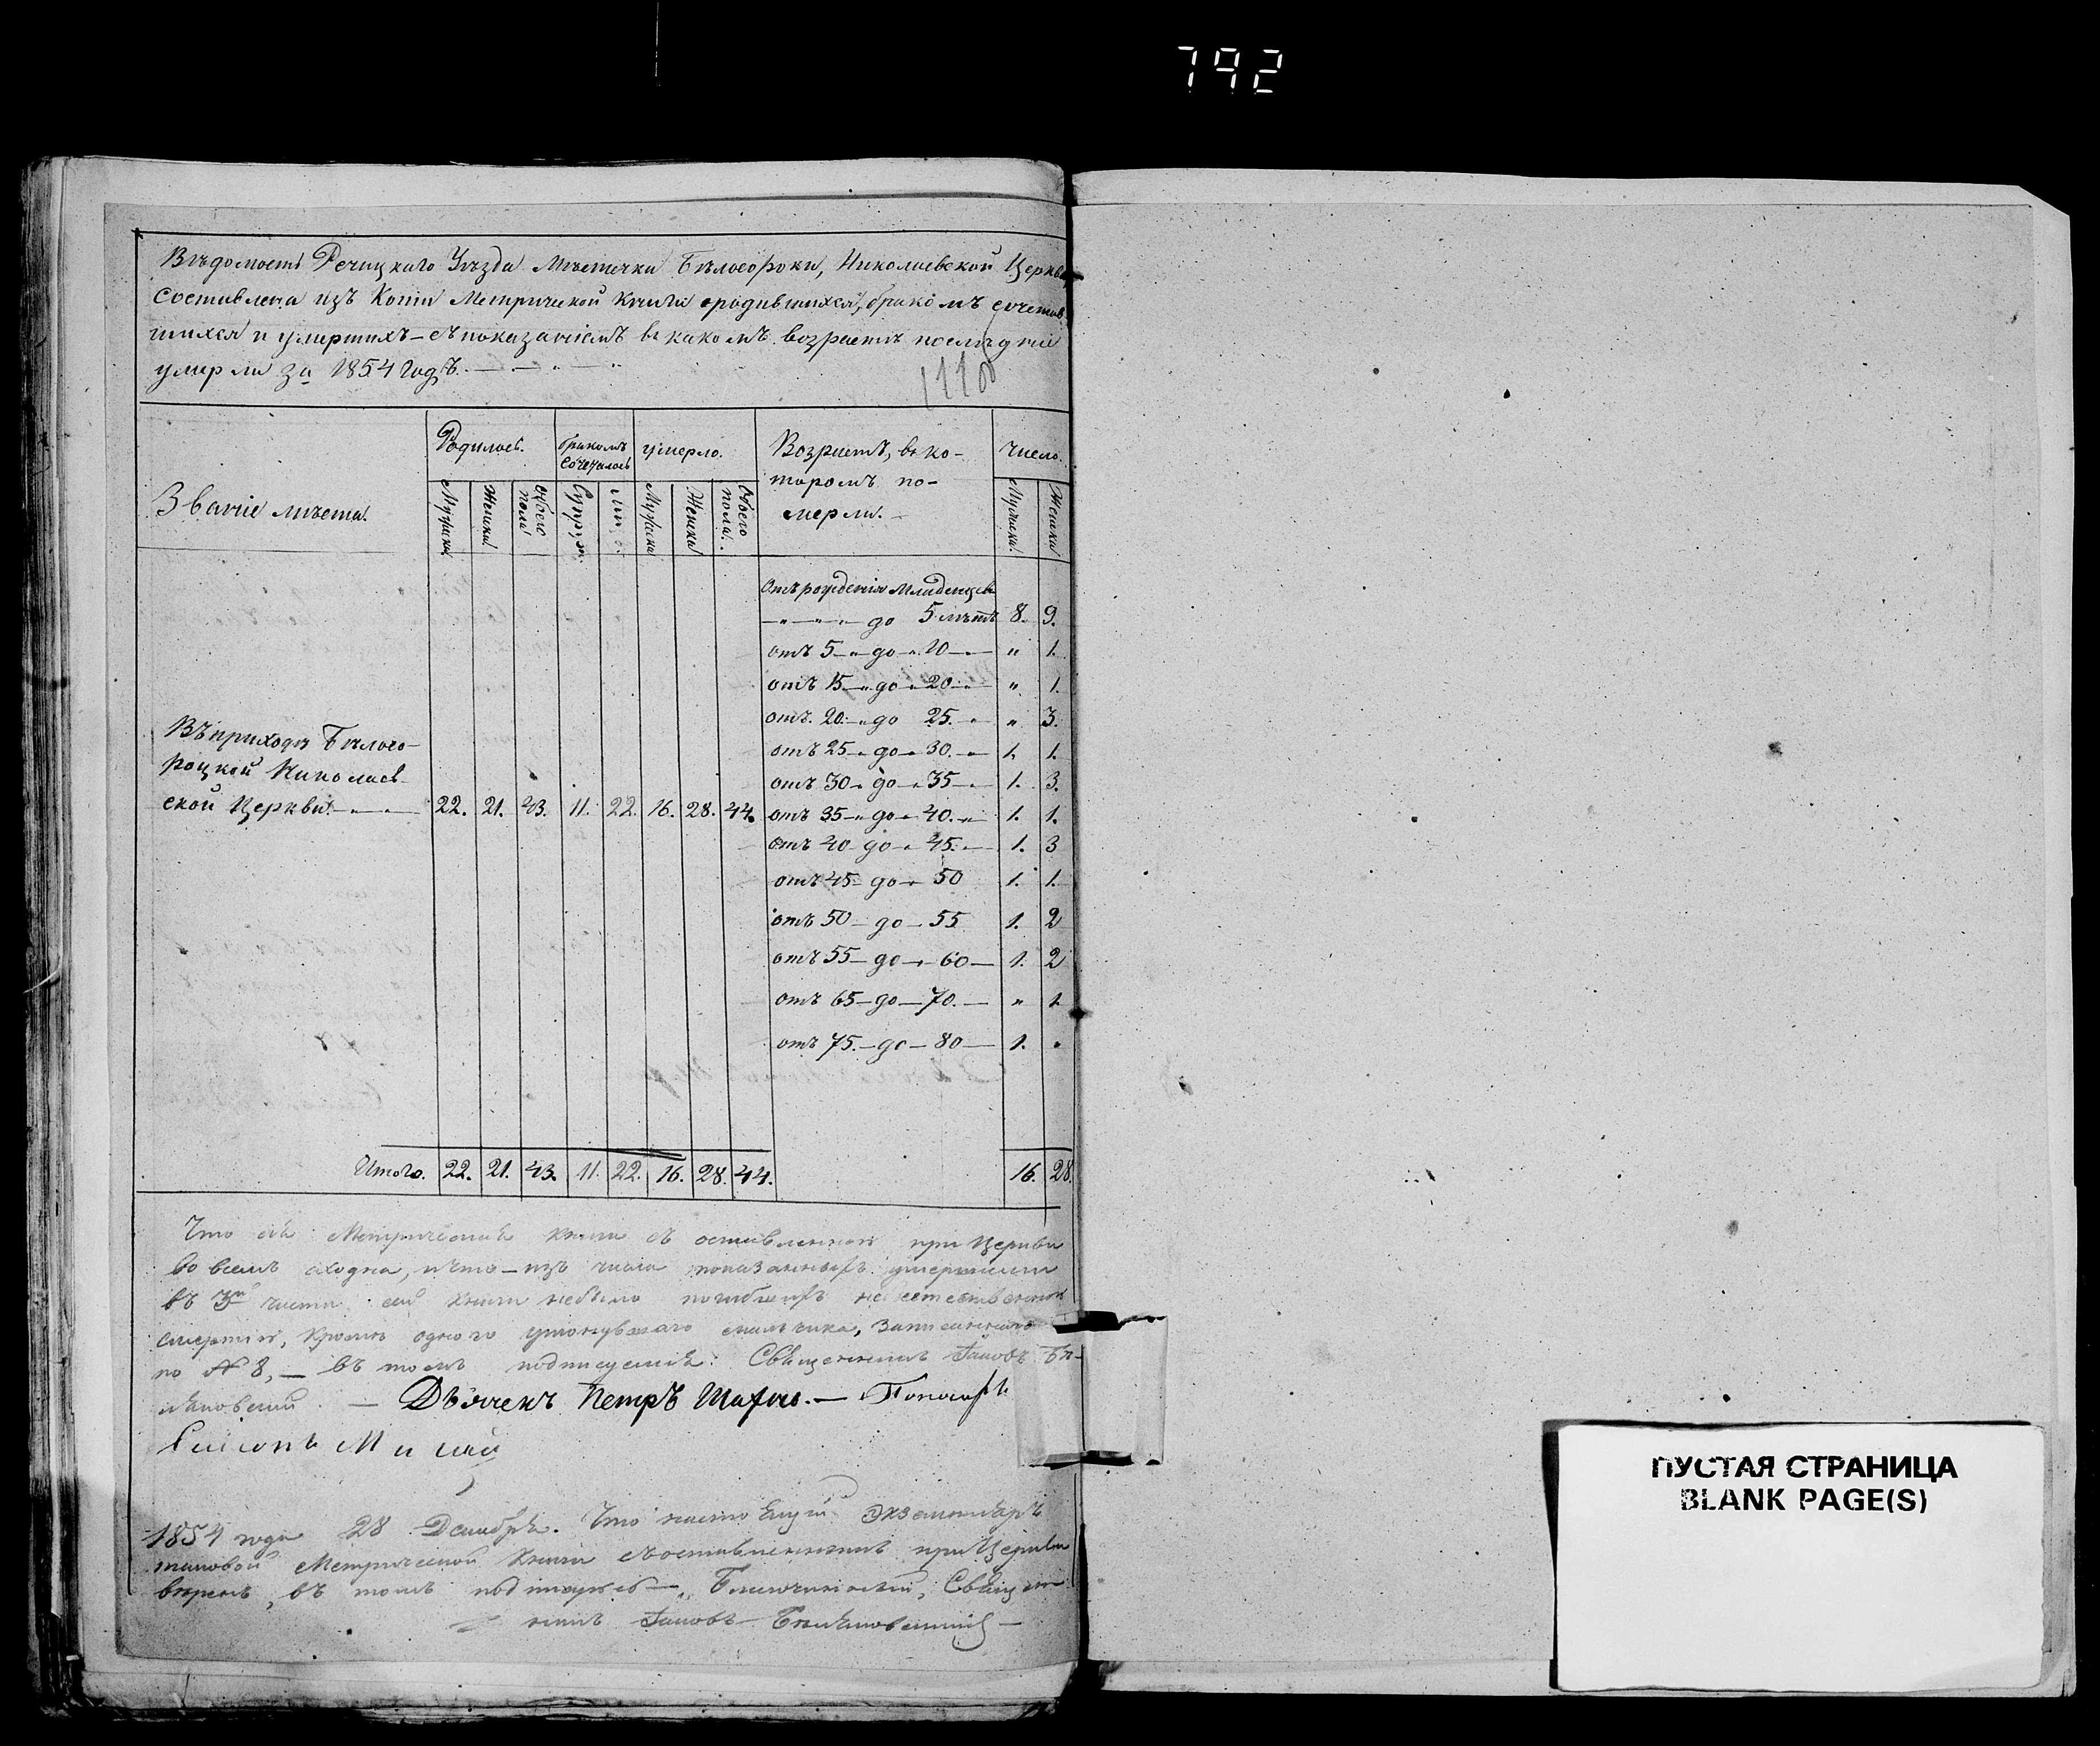 792
Вѣдомость Речицкаго Уѣзда Мѣстечка Бѣлосороки, Николаевской Церкви
Составлена изъ Копіи Метрической Книги о родившихся, бракомъ сочетав
шихся и умершихъ – съ показаніемъ въ какомъ возрастѣ послѣдніе
умерли за 1854 годъ.
Званіе мѣста.
Родилось.
бракомъ сочеталось
умерло.
Возрастъ, въ ко-
торомъ по-
мерли. –
Число.
Мужска
Женска
Обоего пола
Супруж.
Лицъ.
Мужска
Женска
Обоего пола.
Мужска.
Женска
Отъ рожденія Младенцевъ
до 5 лѣтъ 8. 9.
отъ 5 – „ до „ 10 – „ – „ 1.
отъ 15 – „ до „ 20 – „ – „ 1.
отъ 20 – „ до 25. – „ – „ 3.
отъ 25 – „ до – 30. – „ 1. 1.
отъ 30 – до – 35 – „ 1. 3.
Въ приходѣ Бѣлосо-
роцкой Николаев-
ской Церкви. – „ – 22. 21. 43. 11. 22. 16. 28. 44. отъ 35 – „ до – 40. – „ 1. 1.
отъ 40 – до – 45. – 1. 3
отъ 45 – до – 50 1. 1.
отъ 50 – до – 55 1. 2
отъ 55 – до – 60 – 1. 2
отъ 65 – до – 70. – „ 1.
отъ 75. – до – 80 – 1. „
Итого. 22. 21. 43. 11. 22. 16. 28. 44. 16. 28.
Что сія Метрическая книга съ оставленною при Церкви
во всемъ сходна, и что – изъ числа показанныхъ умершими
въ 3й части сей книги небыло погибшихъ неестественною
смертію, кромѣ одного утонувшаго мальчика, записаннаго
по № 8, – въ томъ подписуемся: Священникъ Іаковъ
– Дьячекъ Петръ – Пономарь
Симонъ
1854 года 28 Декабря. Что настоящій Экземпляръ
таковой Метрической книги съ оставленнымъ при Церкви
вѣренъ, въ томъ подпишусь – Благочинный, Священ
никъ Іаковъ –
ПУСТАЯ СТРАНИЦА
BLANK PAGE(S)